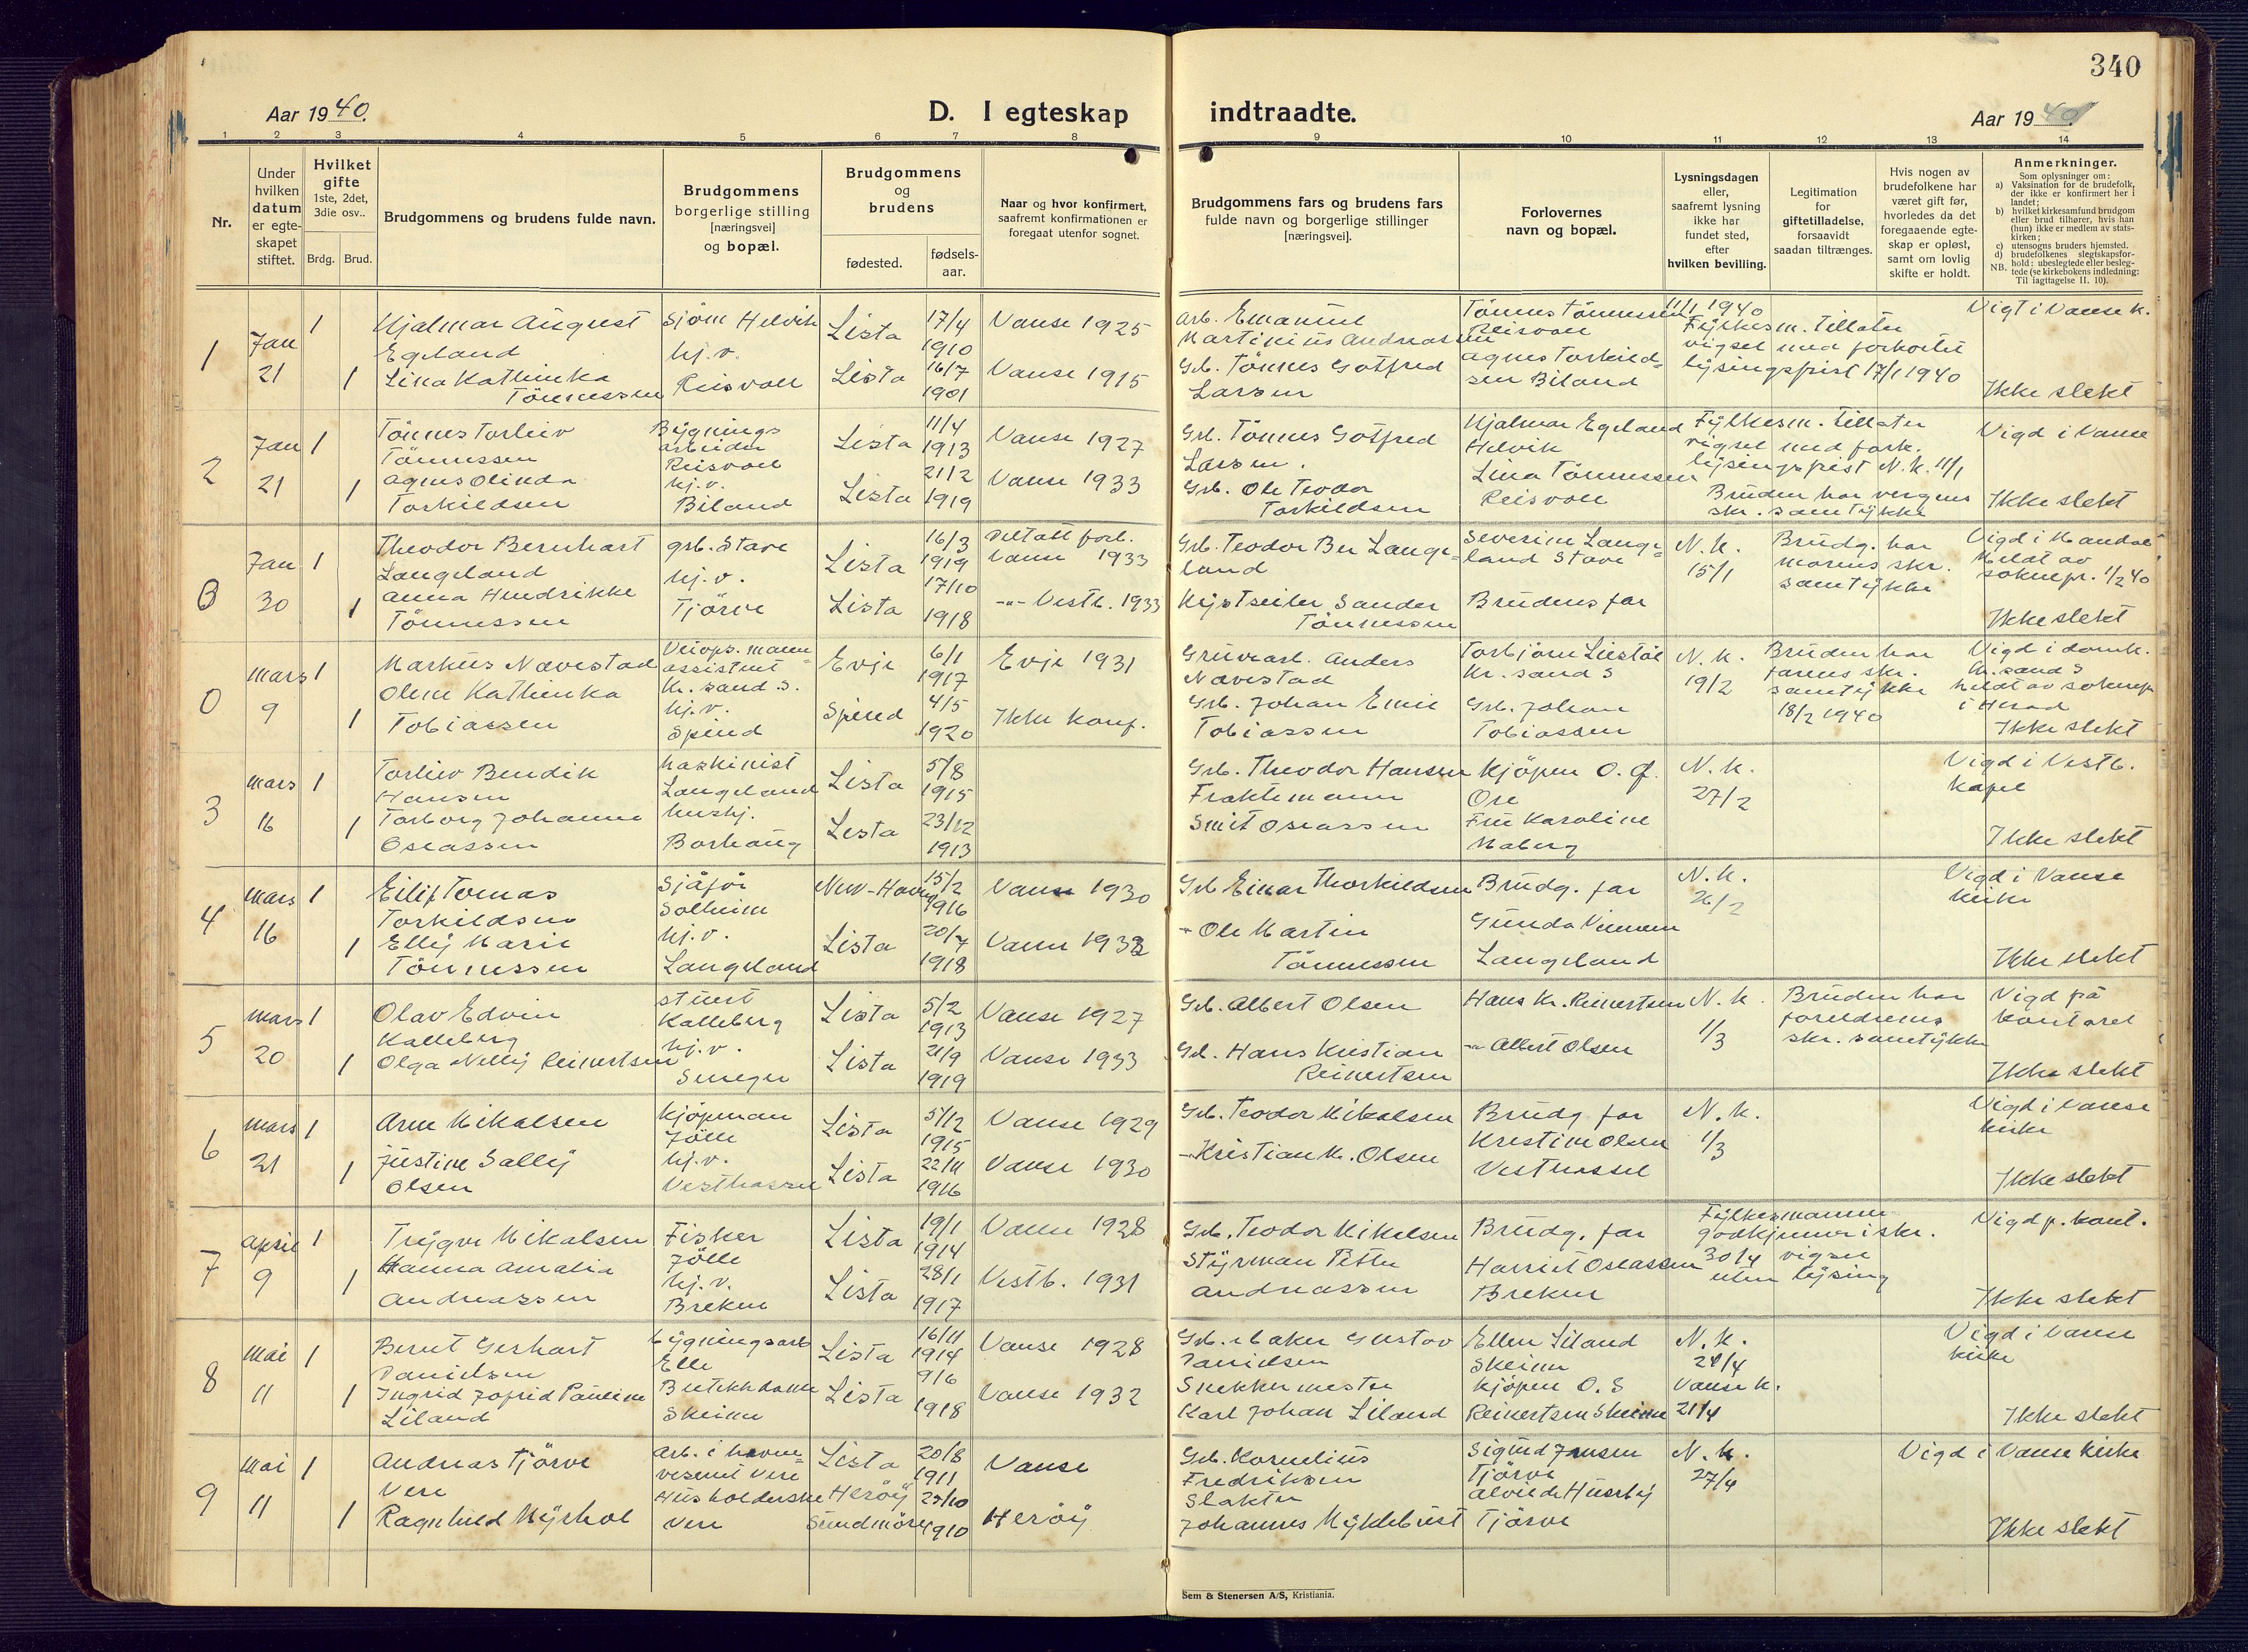 340
Aar 1940.
D. I egteskap indtraadte.
Aar 1940.
1 2 3 4 5 6 7 8 9 10 11 12 13 14
Nr.
Under hvilken datum er egte-skapet stiftet.
Hvilket gifte 1ste, 2det, 3die osv..
Brdg. Brud.
Brudgommens og brudens fulde navn.
Brudgommens borgerlige stilling [næringsvei] og bopæl.
Brudgommens og brudens
fødested. fødsels-aar.
Naar og hvor konfirmert, saafremt konfirmationen er foregaat utenfor sognet.
Brudgommens fars og brudens fars fulde navn og borgerlige stillinger [næringsvei].
Forlovernes navn og bopæl.
Lysningsdagen eller, saafremt lysning ikke har fundet sted, efter hvilken bevilling.
Legitimation for giftetilladelse, forsaavidt saadan tiltrænges.
Hvis nogen av brudefolkene har været gift før, hvorledes da det foregaaende egte-skap er opløst, samt om lovlig skifte er holdt.
Anmerkninger.
Som oplysninger om:
a) Vaksination for de brudefolk, der ikke er konfirmert her i landet;
b) hvilket kirkesamfund brudgom eller brud tilhører, hvis han (hun) ikke er medlem av stats-kirken;
c) utensogns bruders hjemsted.
d) brudefolkenes slegtskapsfor-hold: ubeslegtede eller besleg-tede (se kirkebokens indledning: Til iagttagelse II. 10).
NB.
1 Jan 21 1 Hjalmar August Egeland Sjöm Helvik Lista 17/4 1910 Vanse 1925 Arb. Emanuel Martinius Andreassen Tönnes Tönnessen Reisvoll 11/1 1940 Fylkesm. tillater vigsel med forkortet lysingsfrist 17/1 1940 Vigt i Vanse k.
1 Lina Kathinka Tönnessen hj.v. Reisvoll Lista 16/7 1901 Vanse 1915 Grb. Tönnes Gotfred Larsen Agnes Torkildsen Biland Ikke slekt
2 Jan 21 1 Tönnes Torleiv Tönnessen Bygningsarbeider Reisvoll Lista 11/4 1913 Vanse 1927 Grb. Tönnes Gotfred Larsen. Hjalmar Egeland Helvik Fylkesm. tillater vigsel med fork. lysingsfrist N.K. 11/1 Vigd i Vanse
1 Agnes Olinda Torkildsen hj.v. Biland Lista 21/2 1919 Vanse 1933 Grb. Ole Teodor Torkildsen Lina Tönnessen Reisvoll Bruden har vergens skr. samtykke Ikke slekt
0 Jan 30 1 Theodor Bernhart Langeland grb. Stave Lista 16/3 1919 Deltatt forb. Vanse 1933 Grb. Teodor Ber Langeland Severin Langeland Stave N.K. 15/1 Brudg. har morens skr. samtykke Vigd i Mandal Meldt av soknepr. 1/2 40
1 Anna Hendrikke Tönnessen hj.v. Tjörve Lista 17/10 1918 -"- Vestb. 1933 Kystseiler Sander Tönnessen Brudens far Ikke slekt
0 mars 9 1 Markus Navestad Veiops.mann assistent Kr.sand S. Evje 6/1 1917 Evje 1931 Gruvearb. Anders Navestad Torbjörn Liestöl Kr.sand S N.K. 19/2 Bruden har farens skr. samtykke 18/2 1940 Vigd i domk. Kr.sand S meldt av soknepr i Herad
1 Olene Kathinka Tobiassen hj.v. Spind Spind 4/5 1920 Ikke konf. Grb. Johan Emil Tobiassen Grb. Johan Tobiassen Ikke slekt
3 mars 16 1 Torleiv Bendik Hansen Maskinist Langeland Lista 5/8 1915 Grb. Theodor Hansen Kjöpm O. G. Ore N.K. 27/2 Vigd i Vestb. Kapel
1 Torborg Johanne Oseassen hushj. Borhaug Lista 23/12 1913 Fraktemann Smit Oseassen Fru Karoline Maberg Ikke slekt
4 mars 16 1 Eilif Tomas Torkildsen Sjåför Solheim New-Haven 15/2 1916 Vanse 1930 Grb Einar Thorkildsen Brudg. far N.K. 26/2 Vigd i Vanse kirke
1 Elly Marie Tönnessen hj.v. Langeland Lista 20/7 1918 Vanse 1933 -"- Ole Martin Tönnessen Gunda Langeland Ikke slekt
5 mars 20 1 Olav Edvin Kalleberg stuert Kalleberg Lista 5/2 1913 Vanse 1927 Grb. Albert Olsen Hans Kr. Reinertsen N.K. 1/3 Bruden har foreldrenes skr. samtykke Vigd på kontoret
1 Olga Nelly Reinertsen hj.v. Lista 21/9 1919 Vanse 1933 Grb. Hans Kristian Reinertsen -"- Albert Olsen Ikke slekt
6 mars 21 1 Arne Mikalsen Kjöpman Jölle Lista 5/12 1915 Vanse 1929 Grb. Teodor Mikalsen Brudg far N.K. 1/3 Vigd i Vanse kirke
1 Justine Sally Olsen hj.v. Vesthassel Lista 22/11 1916 Vanse 1930 -"- Kristian M. Olsen Kristine Olsen Vesthassel Ikke slekt
7 April 9 1 Trygve Mikalsen Fisker Jölle Lista 19/1 1914 Vanse 1928 Grb. Teodor Mikalsen Brudg. far Fylkesmannen godkjenner i skr. 30/4 vigsel uten lysing Vigd p. kont.
1 Hanna Amalia Andreassen hj.v. Brekne Lista 28/1 1917 Vestb. 1931 Styrman Petter Andreassen Harriet Oseassen Brekne Ikke slekt
8 Mai 11 1 Bernt Gerhart Danielsen bygningsarb Elle Lista 16/11 1914 Vanse 1928 Grb. Maker Gustav Danielsen Ellen Liland Skeime N.K. 21/4 Vigd i Vanse kirke
1 Ingrid Jofrid Pauline Liland Butikkdame Skeime Lista 9/6 1918 Vanse 1932 Snekkermester Karl Johan Liland Kjöpm O. S Reinertsen Skeime Vanse k. 21/4 Ikke slekt
9 Mai 11 1 Andreas Tjörve Vere Arb. i havnevesenet Vere Lista 20/8 1911 Vanse Grb. Kornelius Fredriksen Sigurd Jensen Tjörve N.K. 27/4 Vigd i Vanse Kirke
1 Ragnhild Myrhol Husholderske Vere Heröy Sundmöre 29/10 1910 Heröy Slakter Johannes Myklebust Alvilde Huseby Tjörve Ikke slekt
Sem & Stenersen A/S, Kristiania.